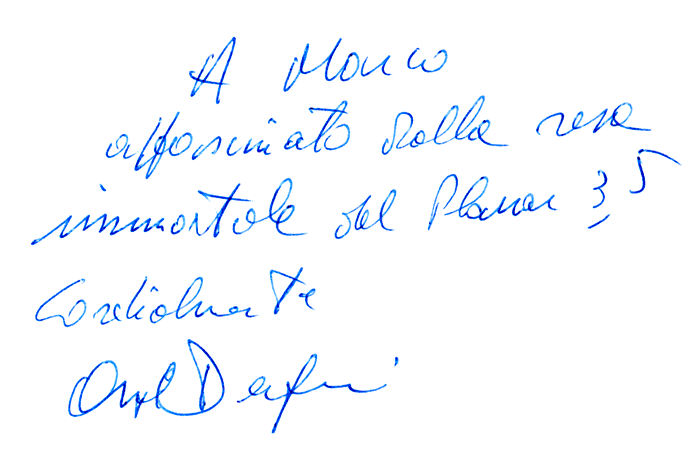 A Marco
affascinato dalla resa
immortale del Planar 3,5
Cordialmente